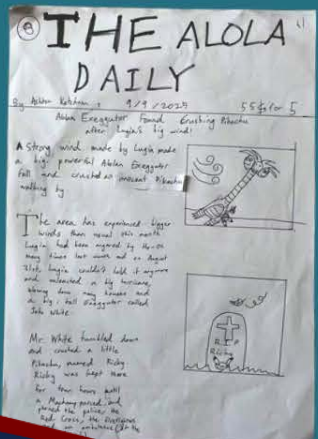 THE ALOLA
DAILY
By Ashton Ketchum, 9/9/2025 55¢ for 5
Alolan Exeggutor Found Crushing Pikachu
after Lugia's big wind!
A strong wind made by Lugia made
a big powerful Alolan Exeggutor
fall and crushed an innocent Pikachu
walking by
The area has experienced bigger
winds than usual this month
Lugia had been angered by
many times last month and on August
31st, Lugia couldn't hold it anymore
and unleashed a big hurricane,
blowing down many houses and
a big, tall Exeggutor called
John White.
R.I.P
Ricky
Mr. White tumbled down
and crushed a little
Pikachu, named Ricky
Ricky was kept there
for four hours until
a passed and
phoned the police, the
Red Cross, the firefighters
and an ambulance at the